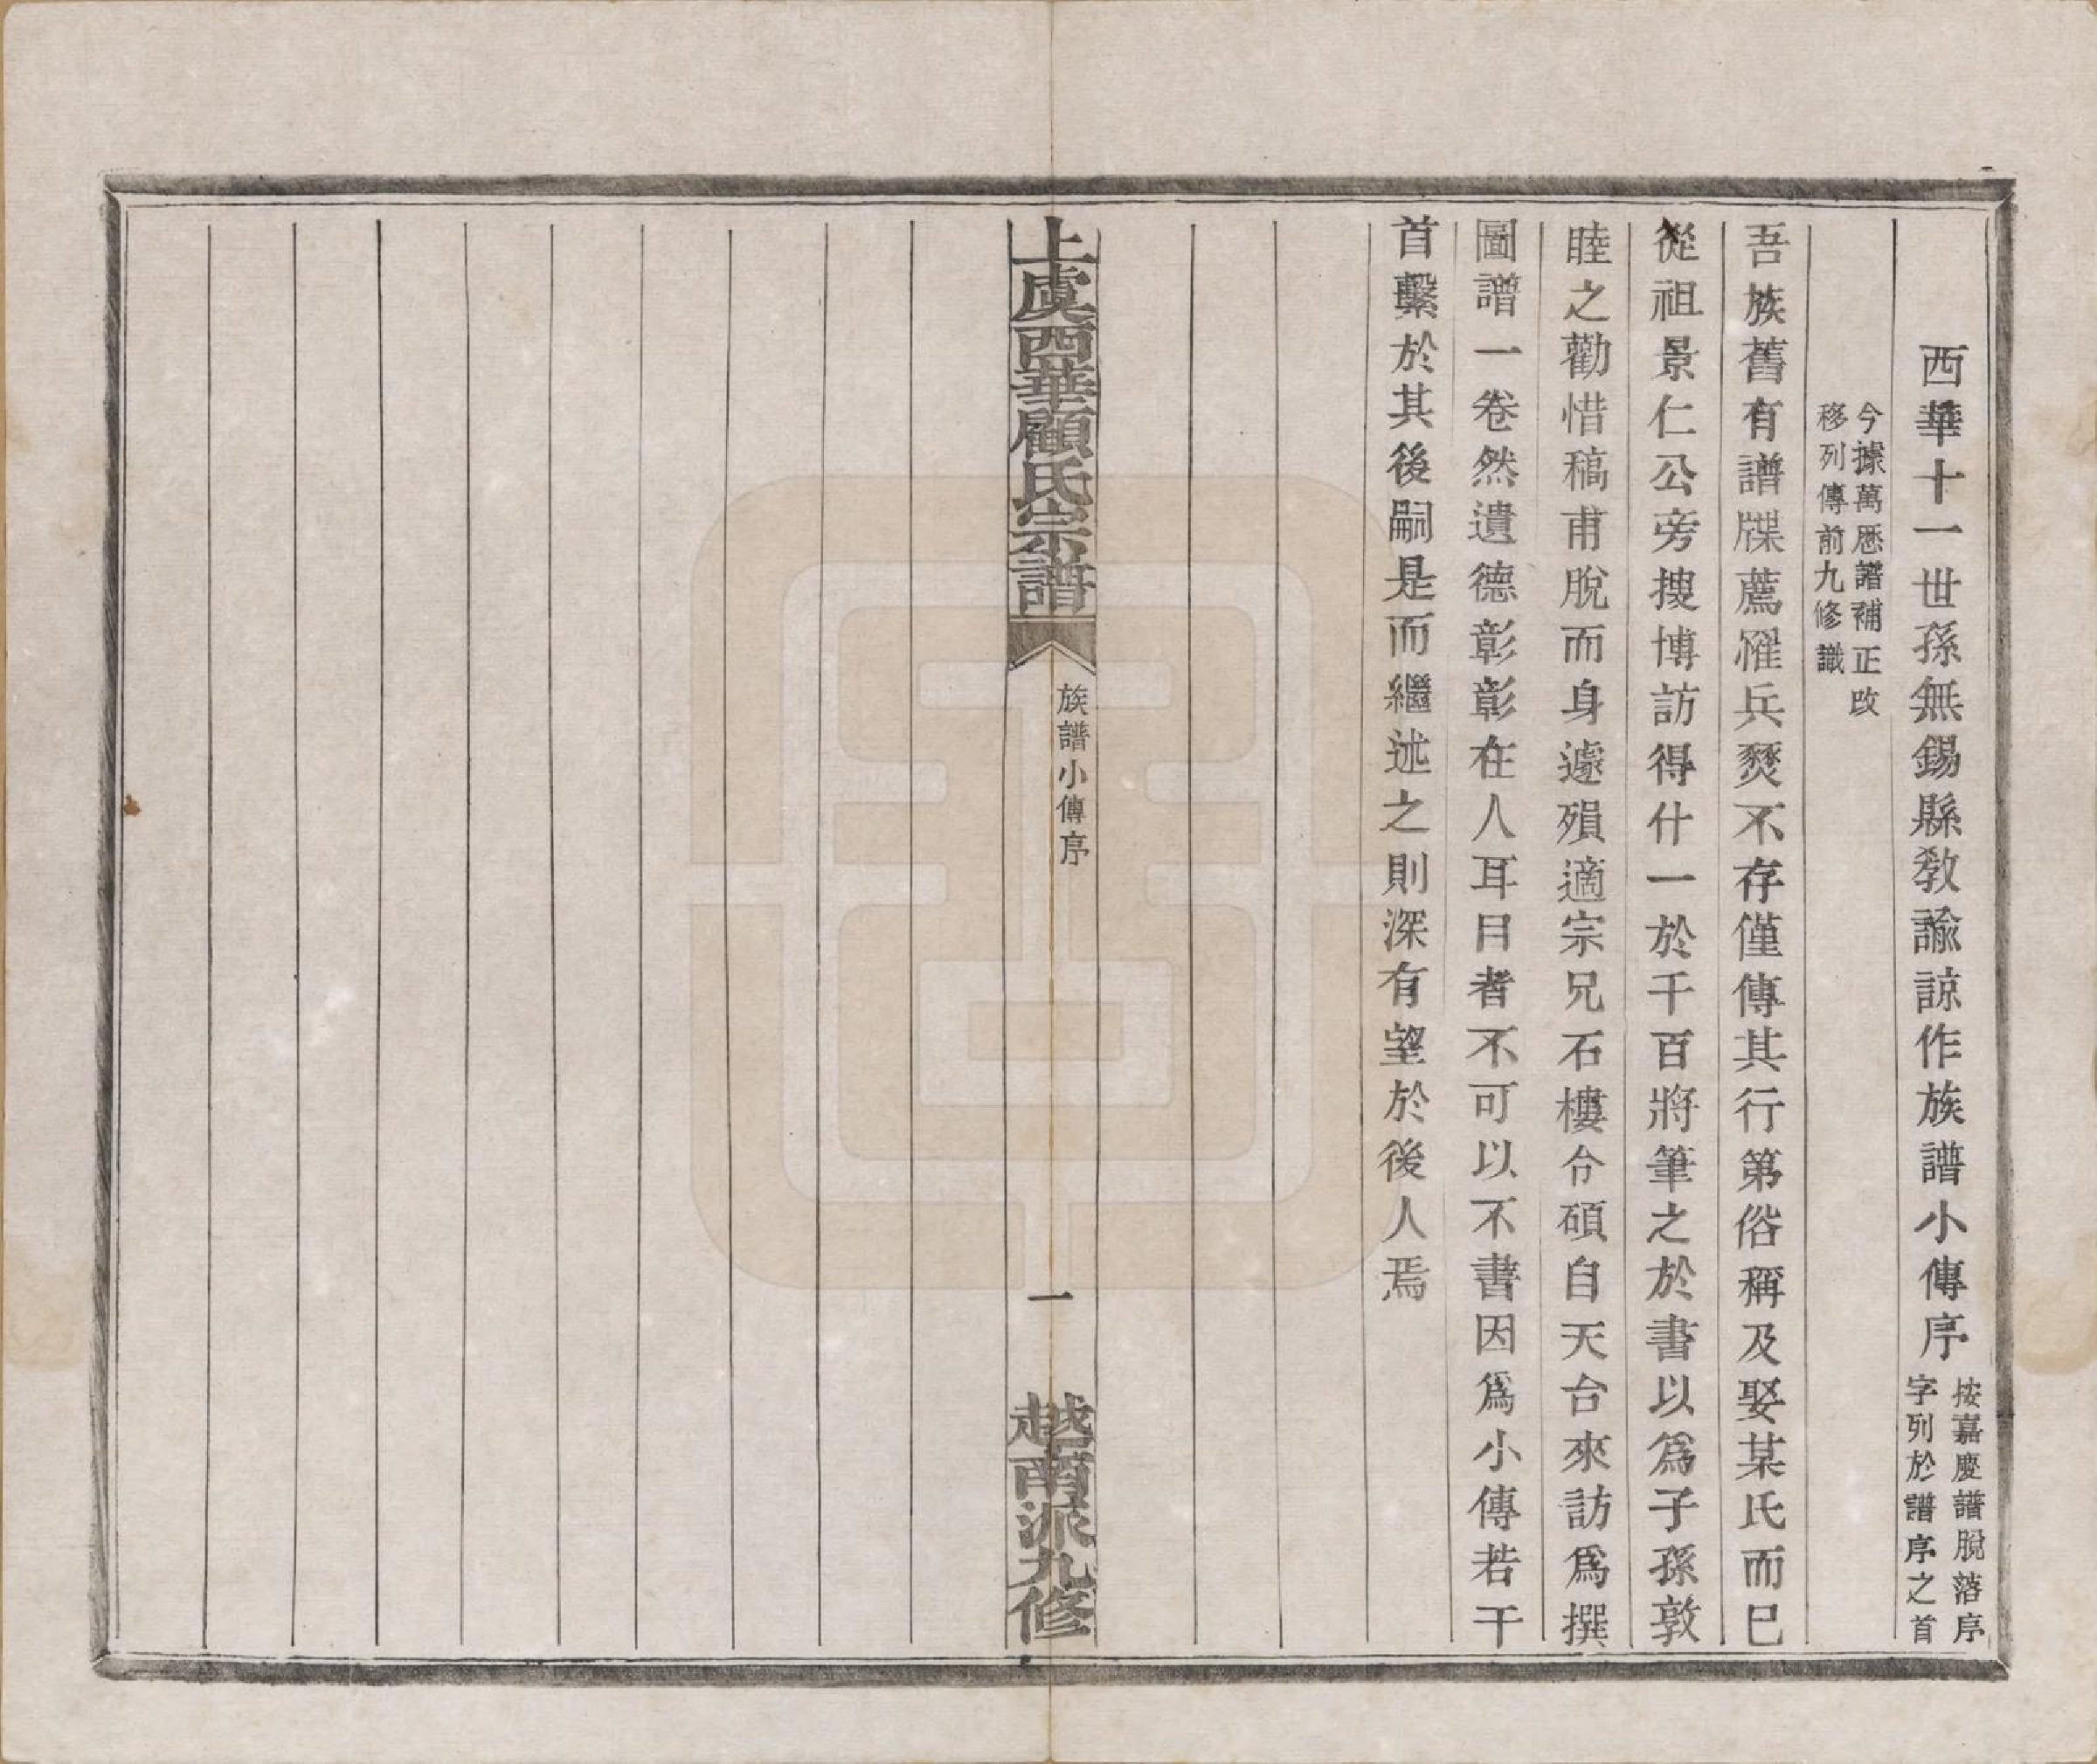 西華十一世孫無錫縣敎諭諒作族譜小傳序按嘉慶譜脫落序字列於譜序之首
今據萬厯譜補正改移列傳前九修識
吾族舊有譜牒薦罹兵燹不存僅傳其行第俗稱及娶某氏而已
從祖景仁公旁搜博訪得什一於千百將筆之於書以爲子孫敦
睦之勸惜稿甫脫而身遽殞適宗兄石樓令碩自天台來訪爲撰
圖譜一卷然遺德彰彰在人耳目者不可以不書因爲小傳若干
首繫於其後嗣是而繼述之則深有望於後人焉
上虞西華顧氏宗譜
族譜小傳序
一
越南派九修